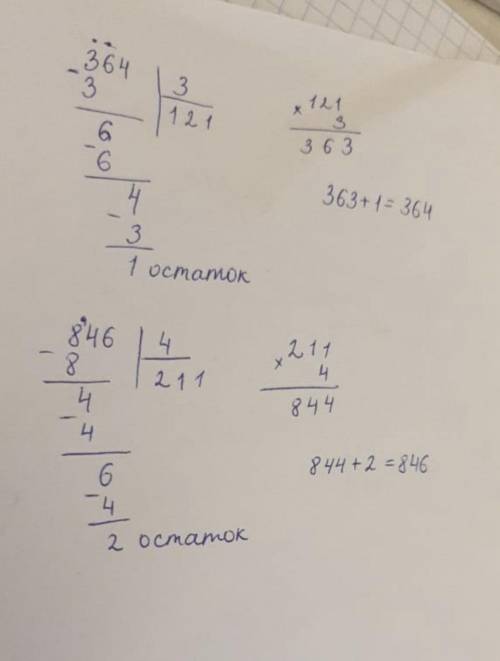 364 | 3
- 3 | 121
6
- 6
4
- 3
1 остаток
× 121
3
363
363+1=364
846 | 4
- 8 | 211
4
- 4
6
- 4
2 остаток
× 211
4
844
844+2=846